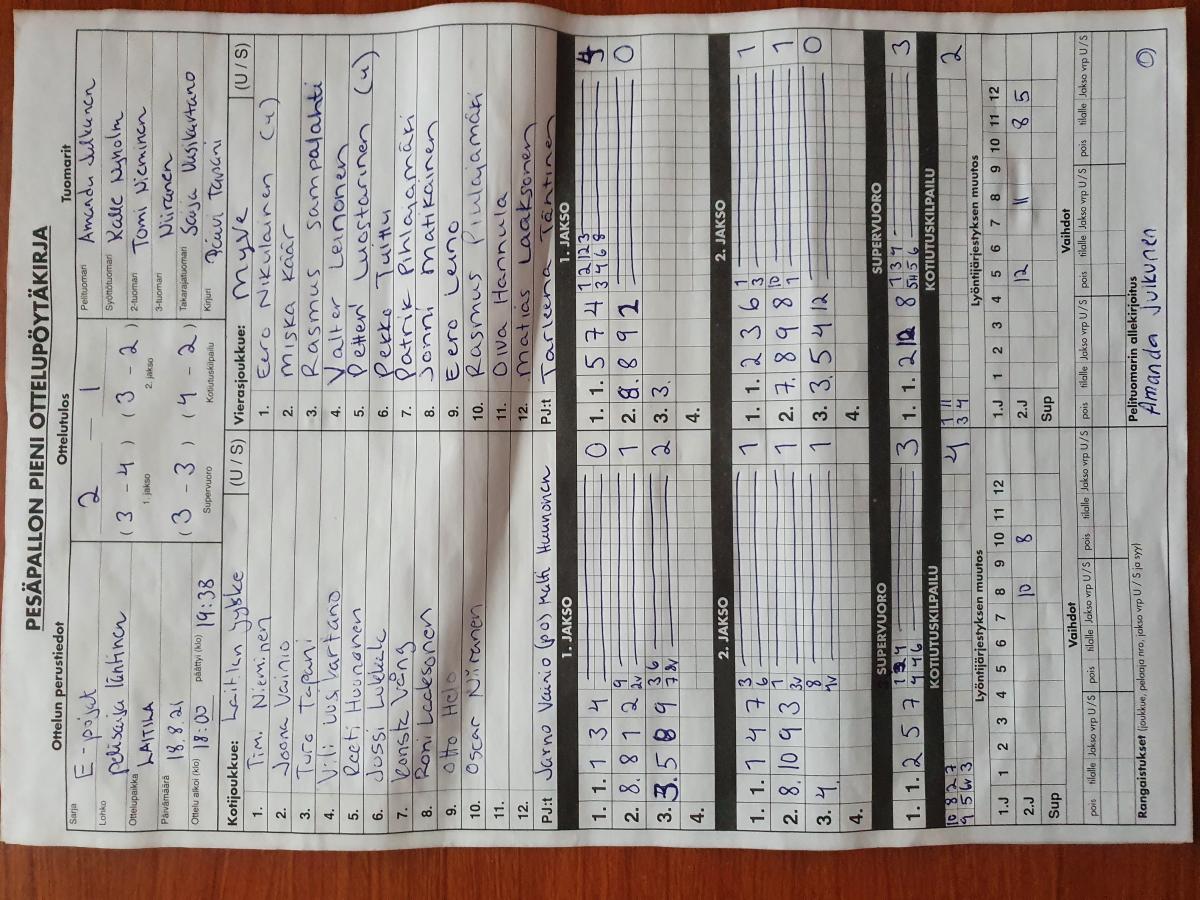 PESÄPALLON PIENI OTTELUPÖYTÄKIRJA
Ottelun perustiedot
Sarja E-pojat
Lohko pelisarja läntinen
Ottelupaikka LAITILA
Päivämäärä 18.8.21
Ottelu alkoi (klo) 18:00 päättyi (klo) 19:38
Ottelutulos
2 — 1
( 3 - 4 ) ( 3 - 2 )
1. jakso 2. jakso
( 3 - 3 ) ( 4 - 2 )
Supervuoro Kotiutuskilpailu
Tuomarit
Pelituomari Amanda Julkunen
Syöttötuomari Kalle Nyholm
2-tuomari Tomi Nieminen
3-tuomari Niiranen
Takarajatuomari Saija Uusikartano
Kirjuri Päivi Tapani
Kotijoukkue: Laitilan Jyske (U / S)
1. Timi Nieminen
2. Joona Vainio
3. Turo Tapani
4. Vili Uusikartano
5. Reeti Huunonen
6. Jussi Lukkala
7. Konsta Väng
8. Roni Laaksonen
9. Otto Helo
10. Oscar Niiranen
11.
12.
PJ:t Jarno Vainio (po) Matti Huunoinen
Vierasjoukkue: MyVe (U / S)
1. Eero Nikulainen (u)
2. Miska Käär
3. Rasmus Sampalahti
4. Valter Leinonen
5. Petteri Luostarinen (u)
6. Pekko Tuittu
7. Patrik Pihlajamäki
8. Jonni Matikainen
9. Eero Leino
10. Rasmus Piulajamäki
11. Oiva Hannula
12. Matias Laaksonen
PJ:t Tarleena Täntinen
1. JAKSO
1. 1. 1 3 4 0
2. 8. 8 1 2 9 2v 1
3. 3. 5 8 9 3 6 7 8v 2
4.
1. JAKSO
1. 1. 5 7 4 1 2 1 2 3 3 4 6 8 4
2. 8. 8 9 2 0
3. 3.
4.
2. JAKSO
1. 1. 1 4 7 3 6 1
2. 8. 10 9 3 1 3v 1
3. 4. 8 1
4.
2. JAKSO
1. 1. 2 3 6 1 3 1
2. 7. 8 9 8 10 1 1
3. 3. 5 4 12 0
4.
SUPERVUORO
1. 1. 2 5 7 1 2 4 4 4 6 3
SUPERVUORO
1. 1. 2 12 8 1 3 4 5 5 6 3
KOTIUTUSKILPAILU
10 8 2 7
9 5 6v 3 4
KOTIUTUSKILPAILU
1 11
3 4 2
Lyöntijärjestyksen muutos
1.J 1 2 3 4 5 6 7 8 9 10 11 12
2.J 10 8
Sup
Lyöntijärjestyksen muutos
1.J 1 2 3 4 5 6 7 8 9 10 11 12
2.J 12 11 8 5
Sup
Vaihdot
pois tilalle Jakso vrp U / S pois tilalle Jakso vrp U / S pois tilalle Jakso vrp U / S
Vaihdot
pois tilalle Jakso vrp U / S pois tilalle Jakso vrp U / S pois tilalle Jakso vrp U / S
Rangaistukset (joukkue, pelaaja nro, jakso vrp U / S ja syy)
Pelituomarin allekirjoitus
Amanda Julkunen